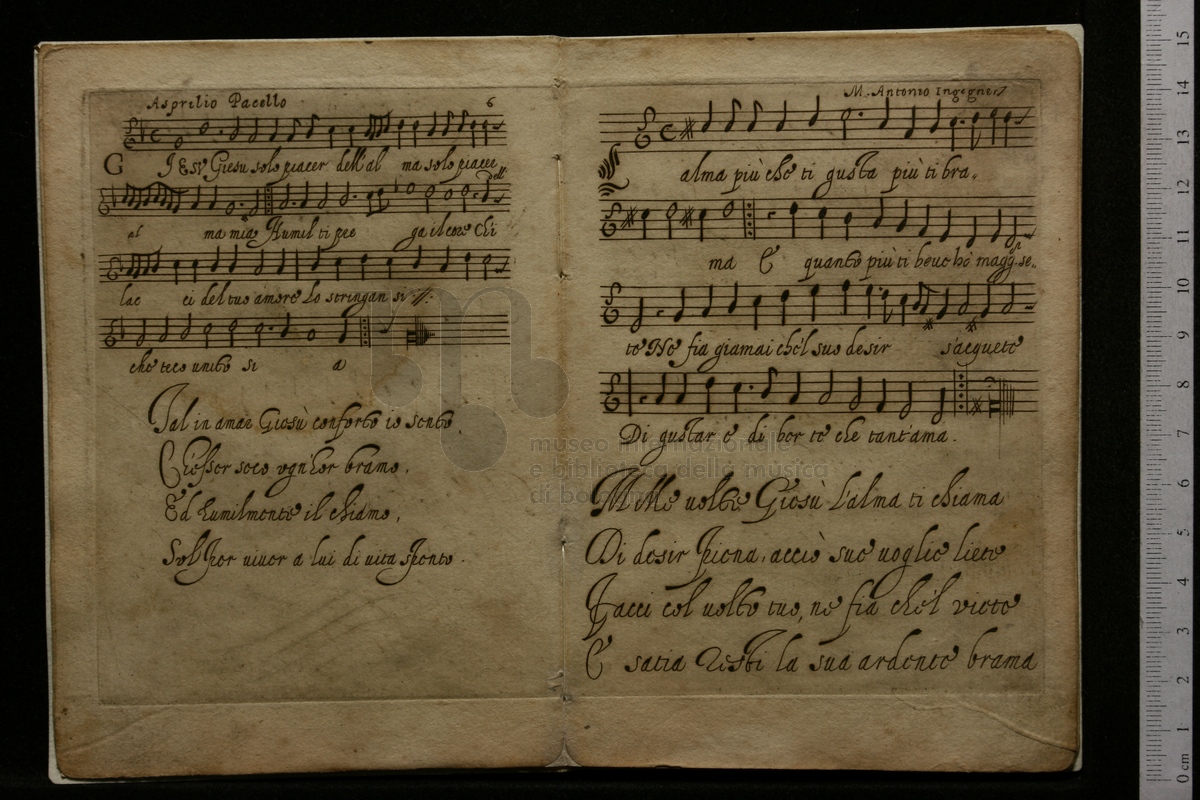 Asprilio Pacello 6
GIESV Giesu solo piacer dell'al ma solo piacer dell'
al ma mia Humil ti pre ga il core Chi
lac ci del tuo amore Lo stringan si //:
che teco unito si a
Tal in amar Giesù conforto io sento,
Ch'esser seco ogn'hor bramo,
Ed humilmente il chiamo,
Sol per viver a lui di vita spento.
M. Antonio Ingegneri
L alma più che ti gusta più ti bra,,
ma E quanto più ti beue hò magg. se,,
te Ne fia giamai che'l suo desir s'acquete
Di gustar e di ber te che tant'ama.
Mille uolte Giesù l'alma ti chiama
Di desir piena, acciò sue uoglie liete
Facci col uolto tuo, ne fia che'l viete
E satia resti la sua ardente brama
museo internazionale
e biblioteca della musica
di bologna
0 cm 1 2 3 4 5 6 7 8 9 10 11 12 13 14 15